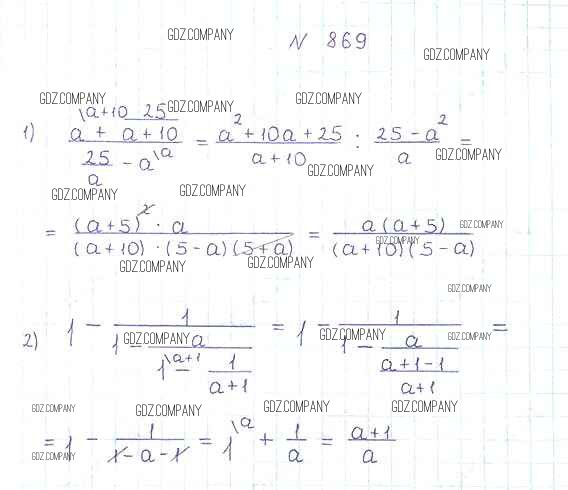 GDZ.COMPANY
N 869
GDZ.COMPANY
GDZ.COMPANY GDZ.COMPANY GDZ.COMPANY
1) (a^{\a+10} + 25/(a+10)) / (25/a - a^{\a}) = (a² + 10a + 25)/(a+10) : (25 - a²)/a =
GDZ.COMPANY GDZ.COMPANY
GDZ.COMPANY GDZ.COMPANY
= ((a+5)² · a)/((a+10) · (5-a)(5+a)) = a(a+5)/((a+10)(5-a))
GDZ.COMPANY GDZ.COMPANY
GDZ.COMPANY GDZ.COMPANY
GDZ.COMPANY
2) 1 - 1/(1 - a/(1^{\a+1} - 1/(a+1))) = 1 - 1/(1 - a/((a+1-1)/(a+1))) =
GDZ.COMPANY GDZ.COMPANY GDZ.COMPANY
GDZ.COMPANY GDZ.COMPANY GDZ.COMPANY GDZ.COMPANY
= 1 - 1/(1-a-1) = 1^{\a} + 1/a = (a+1)/a
GDZ.COMPANY